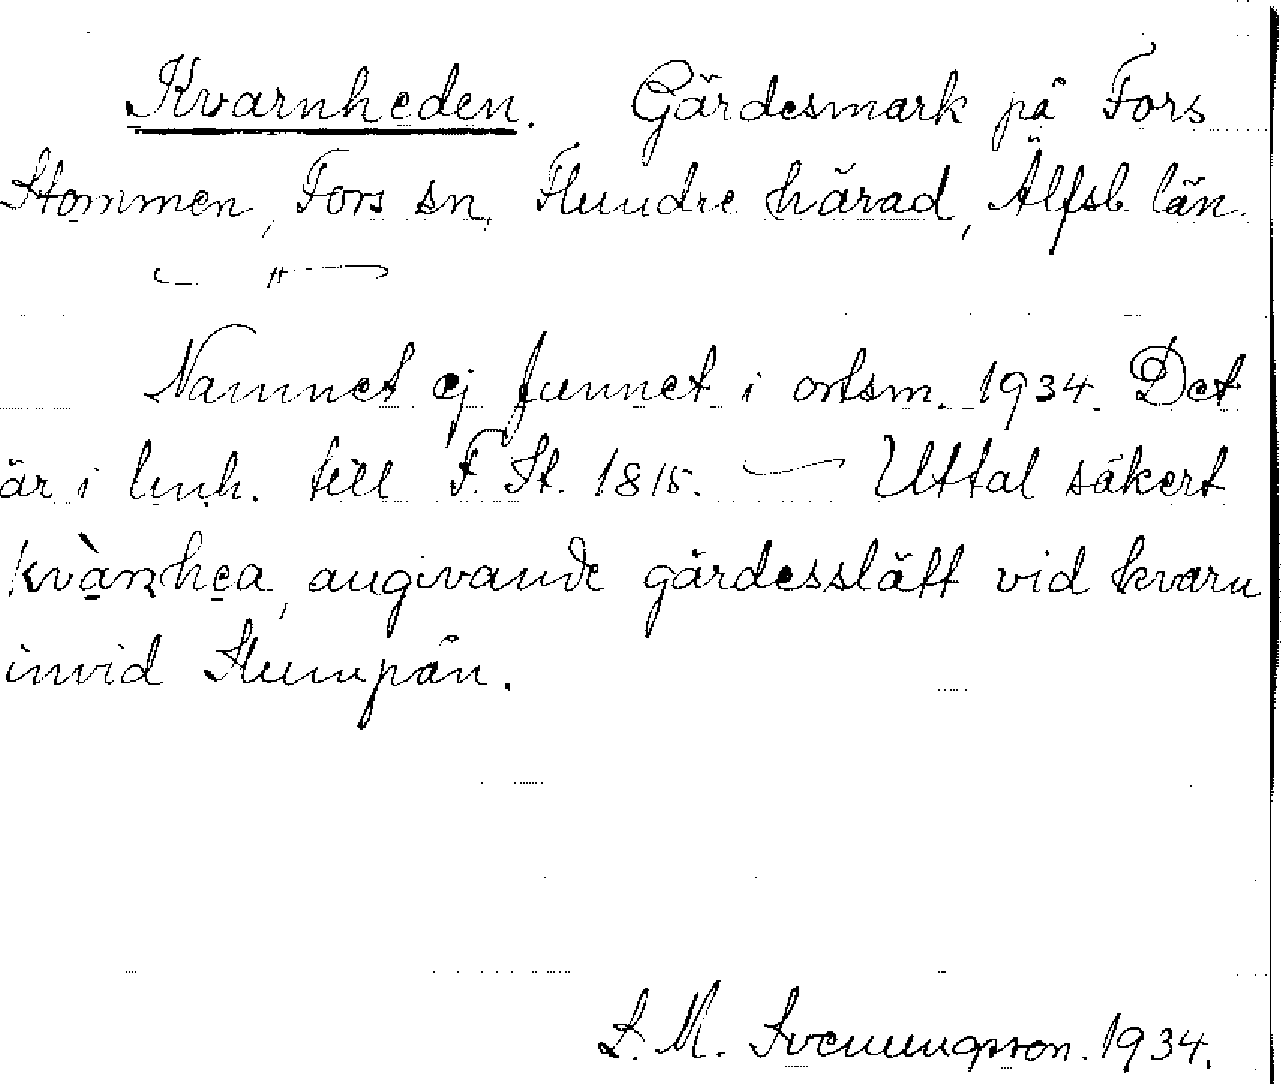 Kvarnheden. Gärdesmark på Fors
Stommen, Fors sn, Flundre härad, Älfsb. län.
— " —
Namnet ej funnet i ortsm. 1934. Det
är i lmh. till F. St. 1815. — Uttal säkert
kvànhea, angivande gärdesslätt vid kvarn
invid Slumpån.
S. M. Svenungsson. 1934.